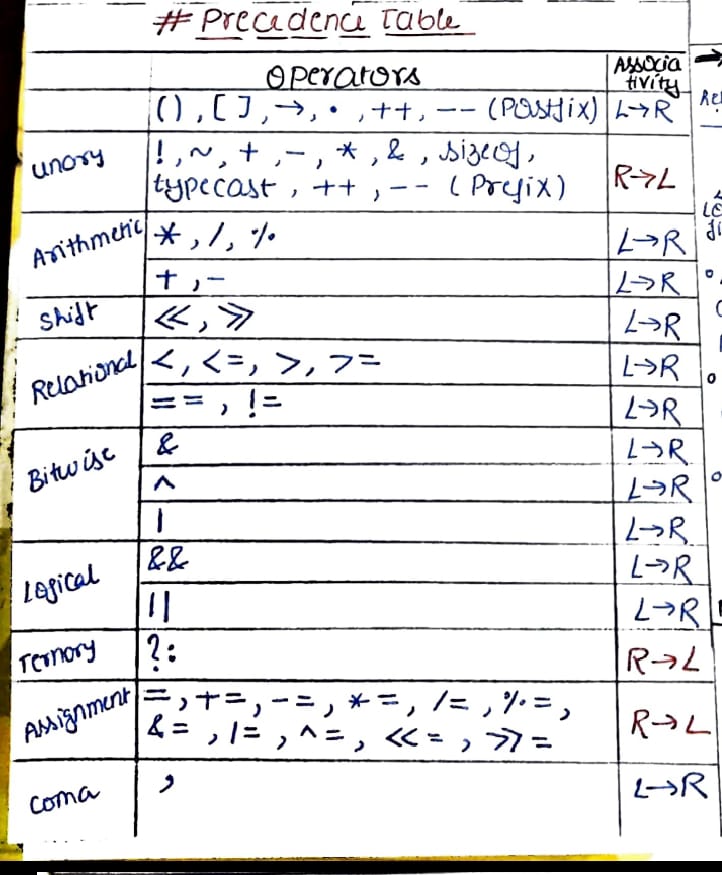 # Precedence Table
Operators Associativity
(), [ ], →, •, ++, -- (Postfix) L→R
unary !, ~, +, -, *, &, sizeof,
typecast, ++, -- (Prefix) R→L
Arithmetic *, /, % L→R
+, - L→R
Shift <<, >> L→R
Relational <, <=, >, >= L→R
==, != L→R
Bitwise & L→R
^ L→R
| L→R
Logical && L→R
|| L→R
Ternory ?: R→L
Assignment =, +=, -=, *=, /=, %=,
&=, |=, ^=, <<=, >>= R→L
coma , L→R